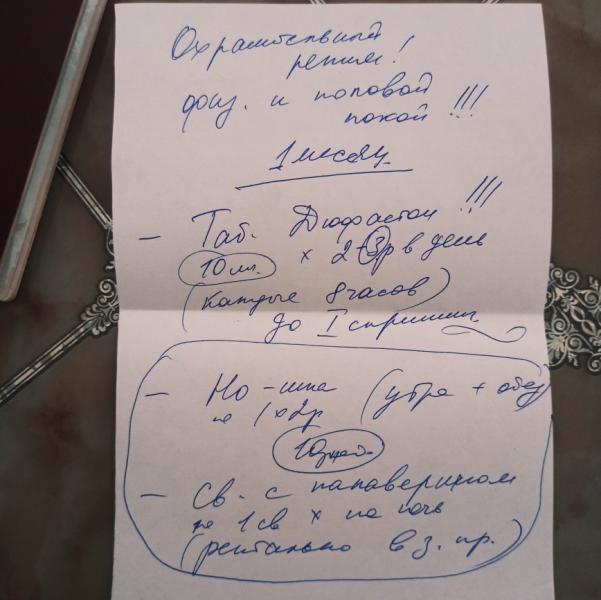 Охранительный
режим!
физ. и половой
покой !!!
1 месяц
— Таб. Дюфастон !!!
10 мг. х 2-3р в день
(каждые 8 часов)
до I скрининг
— Но-шпа (утро + обед)
по 1 х 2р
10 дней.
— Св. с папаверином
по 1 св х на ночь
(ректально в з. пр.)